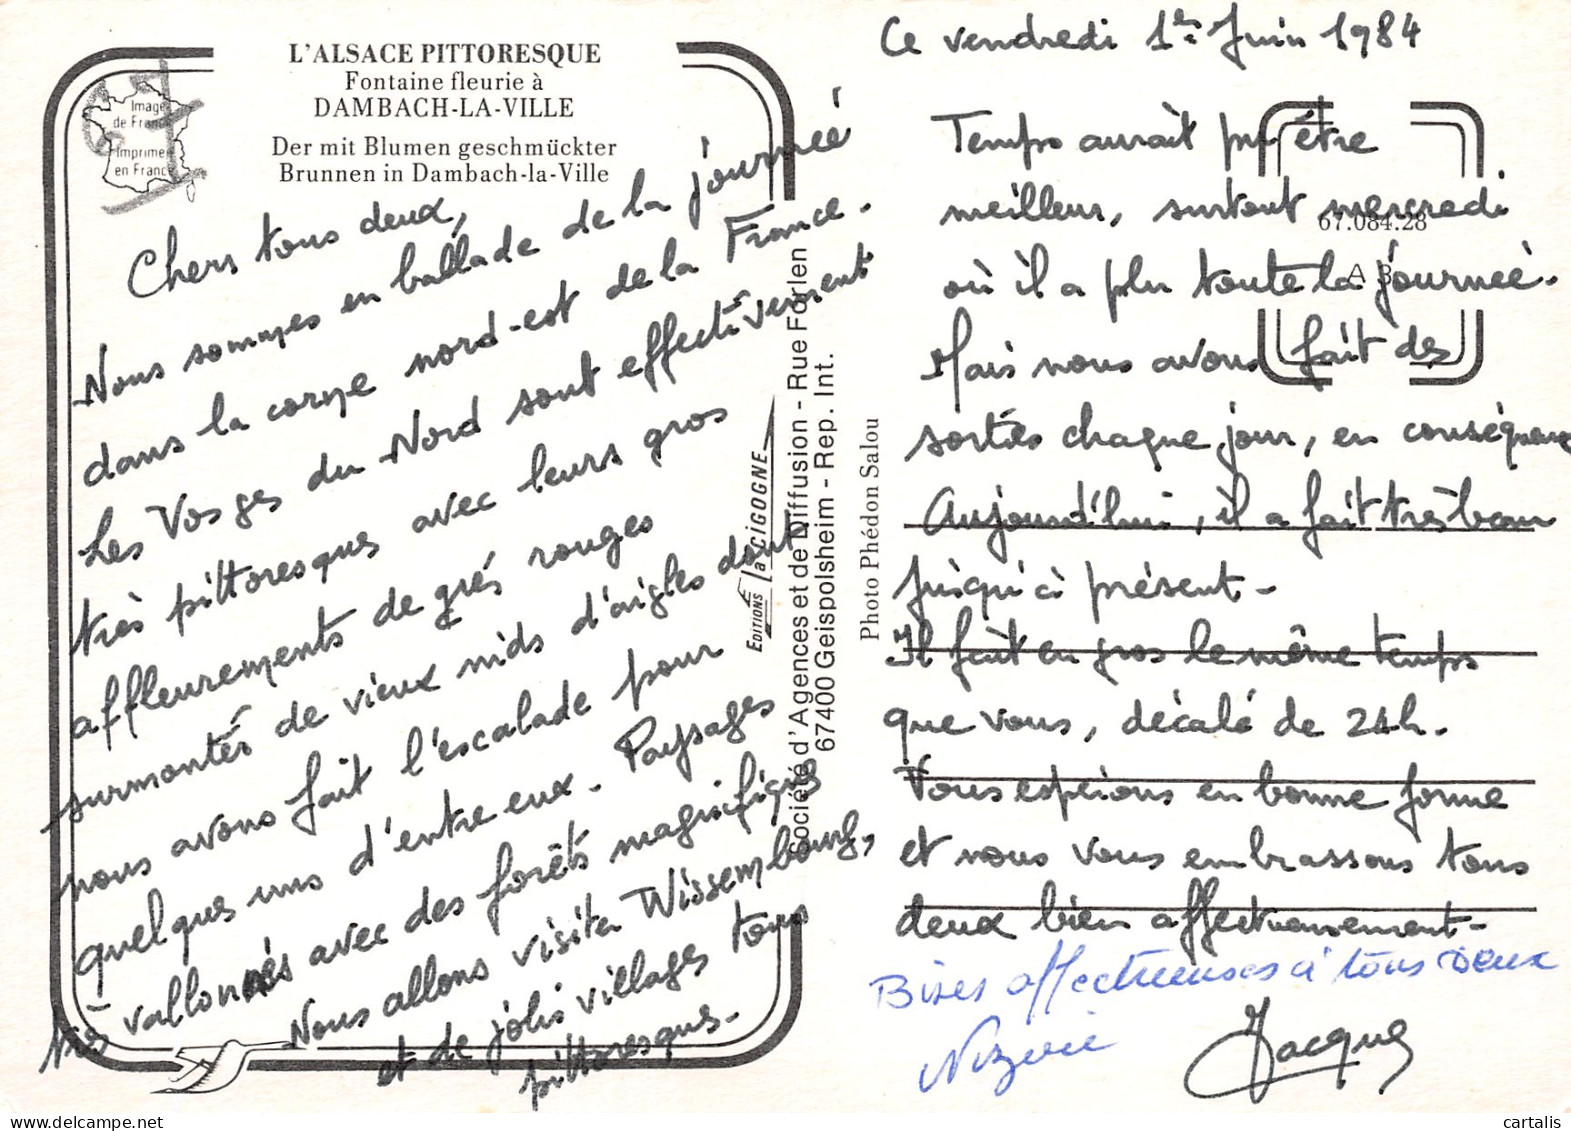 L'ALSACE PITTORESQUE
Fontaine fleurie à
DAMBACH-LA-VILLE
Der mit Blumen geschmückter
Brunnen in Dambach-la-Ville
Image
de France
Imprimé
en France
67
Chers tous deux,
Nous sommes en ballade de la journeé
dans la corne nord-est de la France.
Les Vosges du Nord sont effectivement
très pittoresques avec leurs gros
affleurements de grés rouges
surmontés de vieux nids d'aigles dont
nous avons fait l'escalade pour
quelques uns d'entre eux. Paysages
très vallonnés avec des forêts magnifiques
Nous allons visiter Wissembourg,
et de jolis villages tous
pittoresques.
EDITIONS la CIGOGNE
Société d'Agences et de Diffusion - Rue Forlen
67400 Geispolsheim - Rep. Int.
Photo Phédon Salou
67.084.28
A 3
Ce vendredi 1er Juin 1984
Temps aurait pu être
meilleur, surtout mercredi
où il a plu toute la journeé.
Mais nous avons fait des
sorties chaque jour, en conséquence
Aujourd'hui, il a fait très beau
jusqu'ici présent.
Il fait en gros le même temps
que vous, décalé de 24h.
Vous espérons en bonne forme
et nous vous embrassons tous
deux bien affectueusement.
Bises affectueuses à tous Deux
Jacques
cartalis